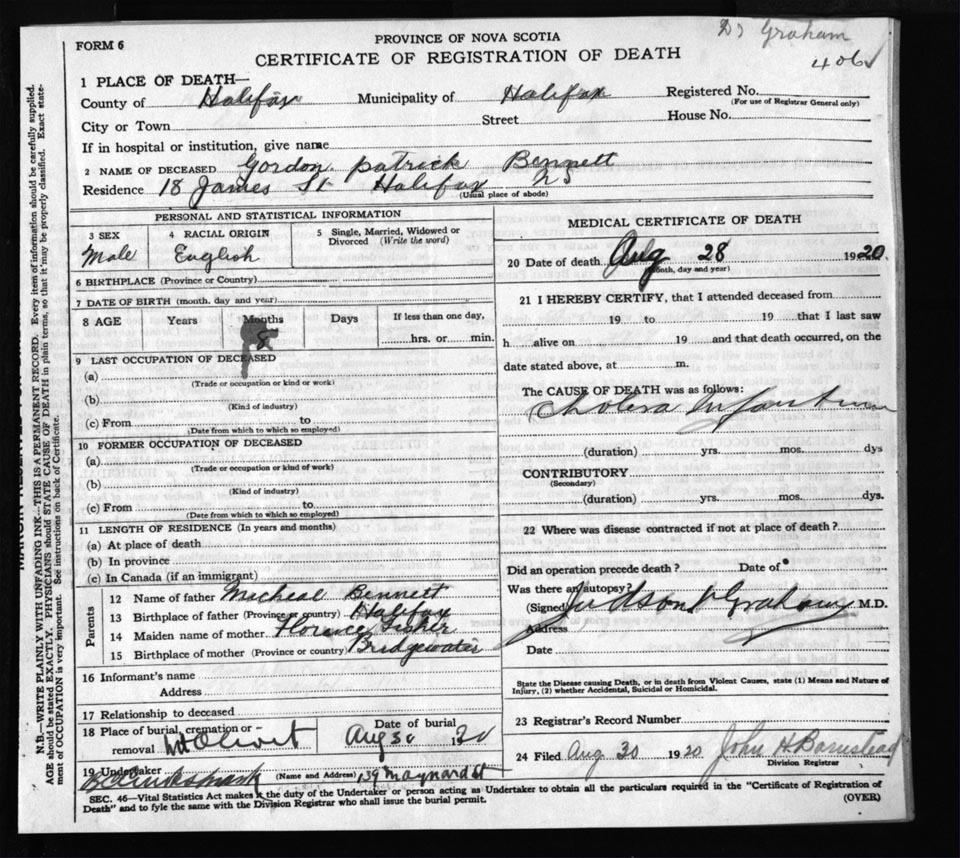 Dr Graham
406
FORM 6
PROVINCE OF NOVA SCOTIA
CERTIFICATE OF REGISTRATION OF DEATH
1 PLACE OF DEATH—
County of Halifax Municipality of Halifax Registered No.
(For use of Registrar General only)
City or Town Street House No.
If in hospital or institution, give name
2 NAME OF DECEASED Gordon Patrick Bennett
Residence 18 James St Halifax N S
(Usual place of abode)
PERSONAL AND STATISTICAL INFORMATION
3 SEX 4 RACIAL ORIGIN 5 Single, Married, Widowed or Divorced (Write the word)
Male English
6 BIRTHPLACE (Province or Country)
7 DATE OF BIRTH (month, day and year)
8 AGE Years Months Days If less than one day,
8 hrs. or min.
9 LAST OCCUPATION OF DECEASED
(a)
(Trade or occupation or kind or work)
(b)
(Kind of industry)
(c) From to
(Date from which to which so employed)
10 FORMER OCCUPATION OF DECEASED
(a)
(Trade or occupation or kind of work)
(b)
(Kind of industry)
(c) From to
(Date from which to which so employed)
11 LENGTH OF RESIDENCE (In years and months)
(a) At place of death
(b) In province
(c) In Canada (if an immigrant)
Parents
12 Name of father Micheal Bennett
13 Birthplace of father (Province or country) Halifax
14 Maiden name of mother Florence Fisher
15 Birthplace of mother (Province or country) Bridgewater
16 Informant's name
Address
17 Relationship to deceased
18 Place of burial, cremation or removal Mt Olivet
Date of burial
Aug 30 1920
19 Undertaker (Name and Address) 139 Maynard St
MEDICAL CERTIFICATE OF DEATH
20 Date of death Aug 28 1920
(Month, day and year)
21 I HEREBY CERTIFY, that I attended deceased from
19 to 19 that I last saw
h alive on 19 and that death occurred, on the
date stated above, at m.
The CAUSE OF DEATH was as follows:
Cholera Infantum
(duration) yrs. mos. dys
CONTRIBUTORY
(Secondary)
(duration) yrs. mos. dys.
22 Where was disease contracted if not at place of death?
Did an operation precede death? Date of
Was there an autopsy?
(Signed) Judson V Graham M.D.
Address
Date
State the Disease causing Death, or in death from Violent Causes, state (1) Means and Nature of
Injury, (2) whether Accidental, Suicidal or Homicidal.
23 Registrar's Record Number
24 Filed Aug 30 1920 John H Barnstead
Division Registrar
SEC. 46—Vital Statistics Act makes it the duty of the Undertaker or person acting as Undertaker to obtain all the particulars required in the "Certificate of Registration of
Death" and to fyle the same with the Division Registrar who shall issue the burial permit. (OVER)
N.B.—WRITE PLAINLY WITH UNFADING INK—THIS IS A PERMANENT RECORD. Every item of information should be carefully supplied.
AGE should be stated EXACTLY. PHYSICIANS should STATE CAUSE OF DEATH in plain terms, so that it may be properly classified. Exact state-
ment of OCCUPATION is very important. See instructions on back of Certificate.